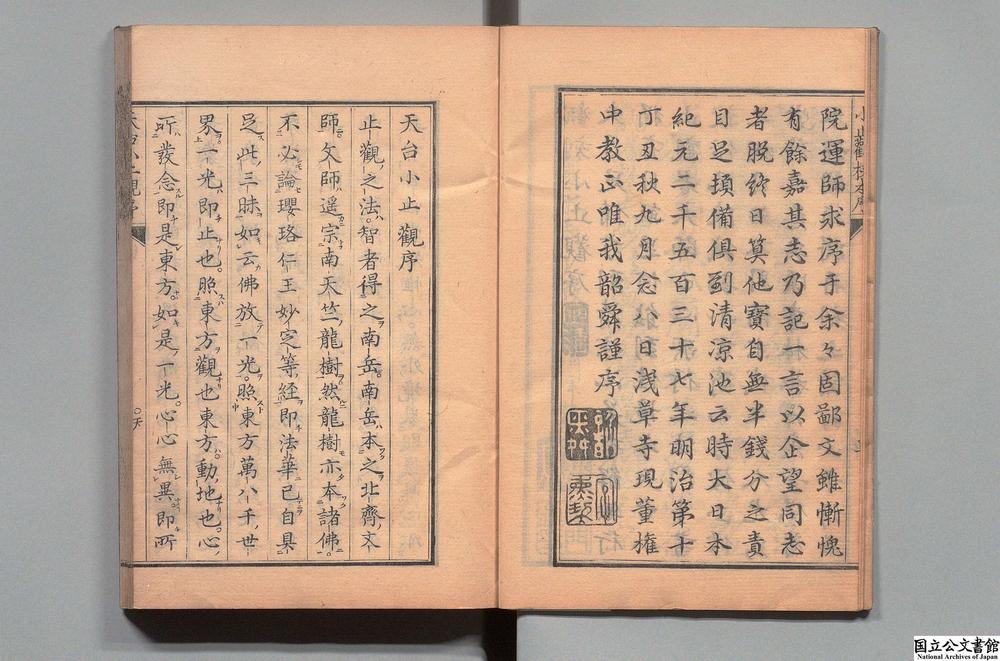 院運師求序于余々固鄙文雖慚愧
有餘嘉其志乃記一言以企望同志
者脱終日算他寶自無半錢分之責
目足須備俱到清凉池云時大日本
紀元二千五百三十七年明治第十
丁丑秋九月念八日浅草寺現董権
中教正唯我韶舜謹序
天台小止觀序
止觀之法。智者得之南岳。南岳本之北齊文
師。文師遥宗南天竺龍樹。然龍樹亦本諸佛。
不必論瓔珞仁王妙定等經。即法華已自具
足此三昧。如云佛放一光。照東方萬八千世
界。一光即止也。照東方觀也。東方動地也。心
所發念即是東方。如是一光。心心無異即所
国立公文書館
National Archives of Japan